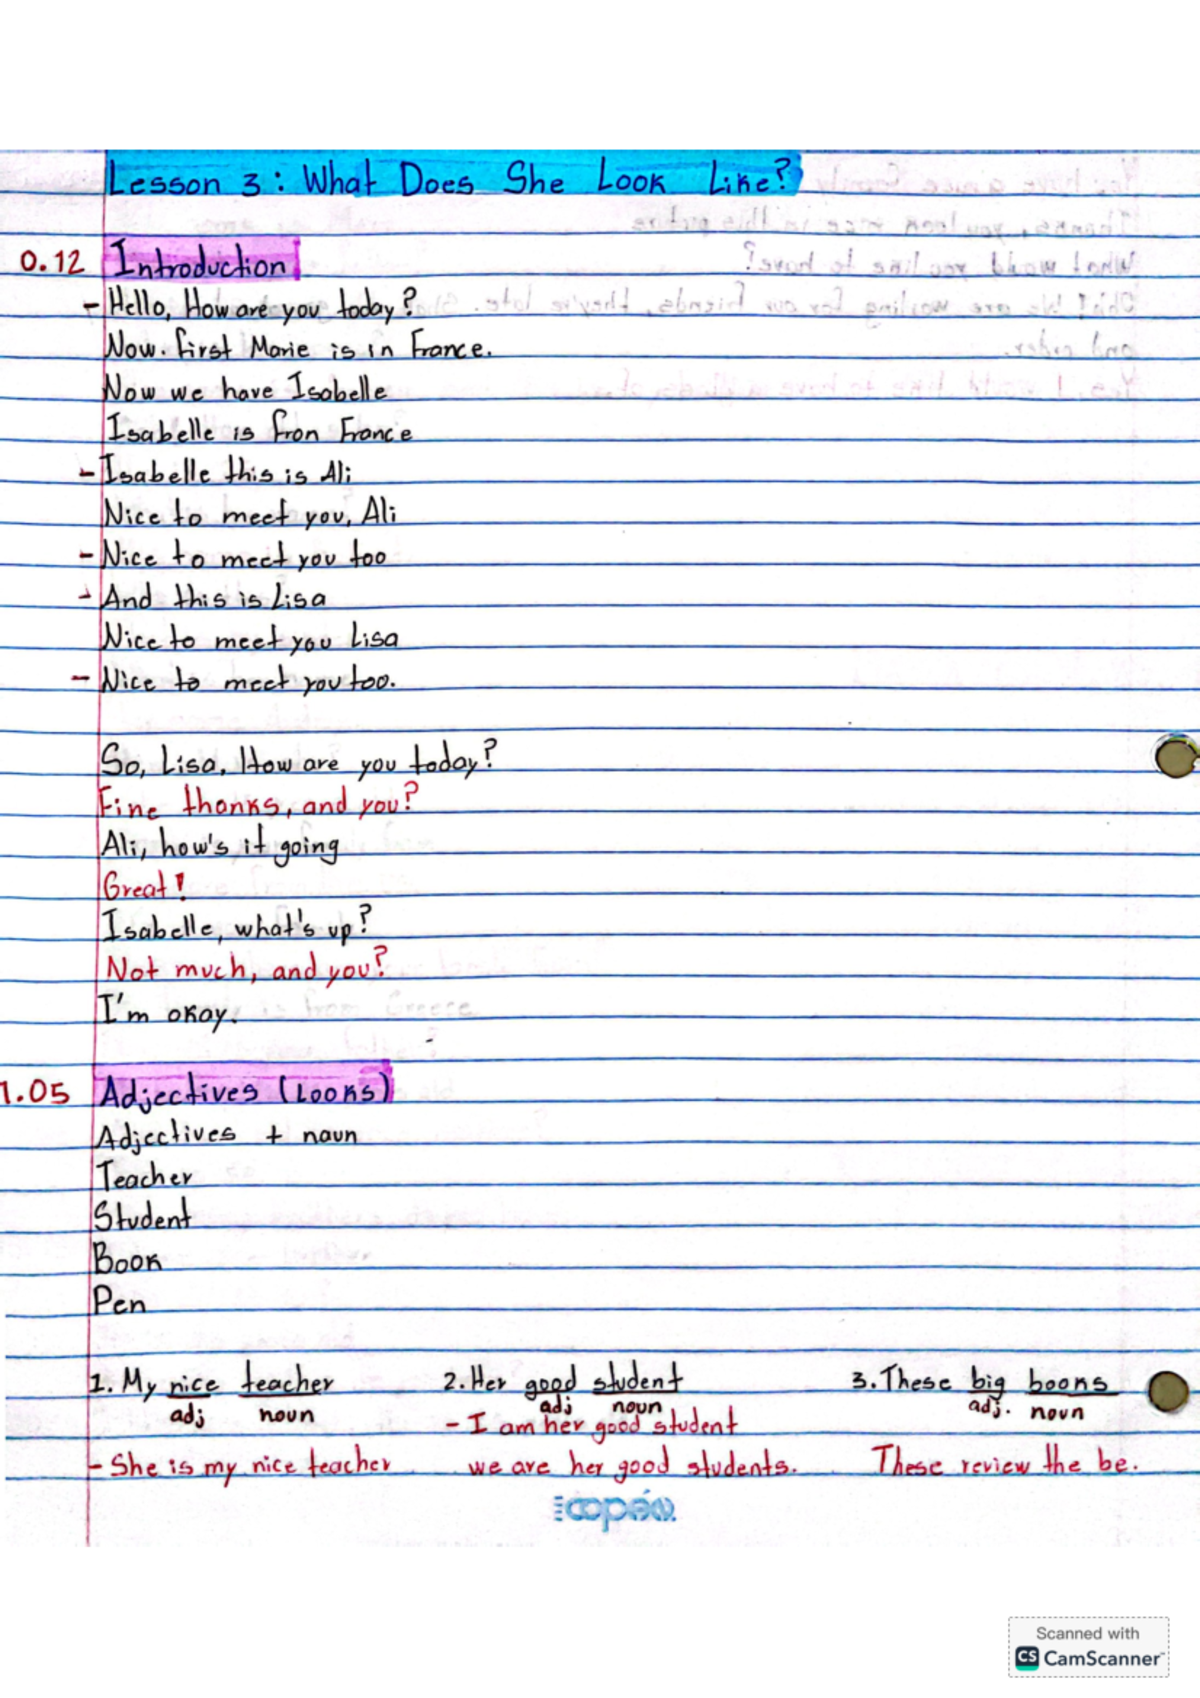 Lesson 3: What Does She Look Like?
0.12 Introduction
- Hello, How are you today?
Now. first Marie is in France.
Now we have Isabelle
Isabelle is fron France
- Isabelle this is Ali
Nice to meet you, Ali
- Nice to meet you too
- And this is Lisa
Nice to meet you Lisa
- Nice to meet you too.
So, Lisa, How are you today?
Fine thanks, and you?
Ali, how's it going
Great!
Isabelle, what's up?
Not much, and you?
I'm okay.
1.05 Adjectives (Looks)
Adjectives + noun
Teacher
Student
Book
Pen
1. My nice teacher 2. Her good student 3. These big books
adj noun adj noun adj. noun
- I am her good student
- She is my nice teacher we are her good students. These review the be.
Scanned with
CS CamScanner